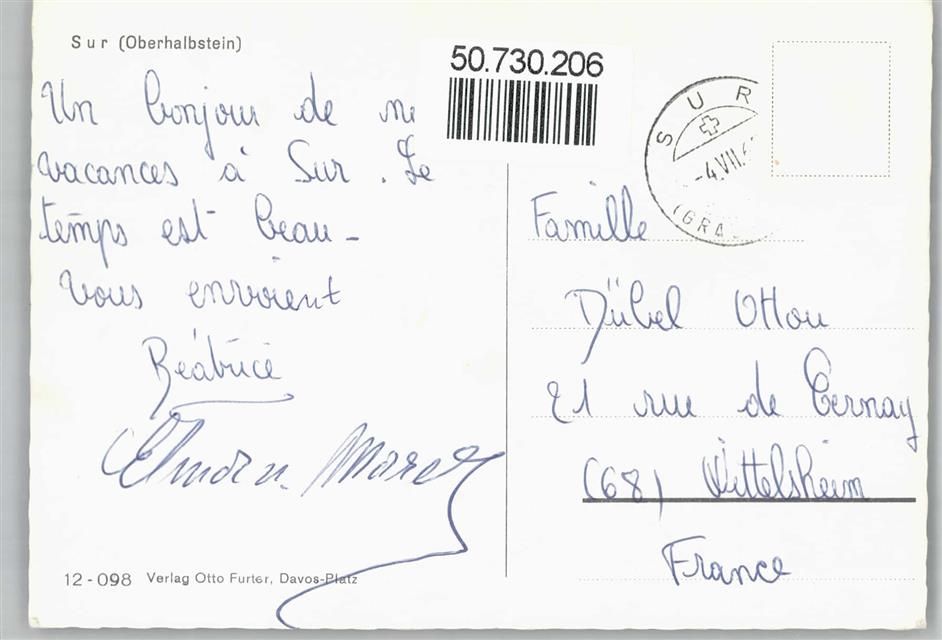 Sur (Oberhalbstein)
50.730.206
Un bonjour de
vacances à Sur. Le
temps est beau -
Vous envoient
Béatrice
SUR
-4.VII.
(GRA
Famille
Dübel Otton
21 rue de Cernay
(68) Wittelsheim
France
12-098 Verlag Otto Furter, Davos-Platz